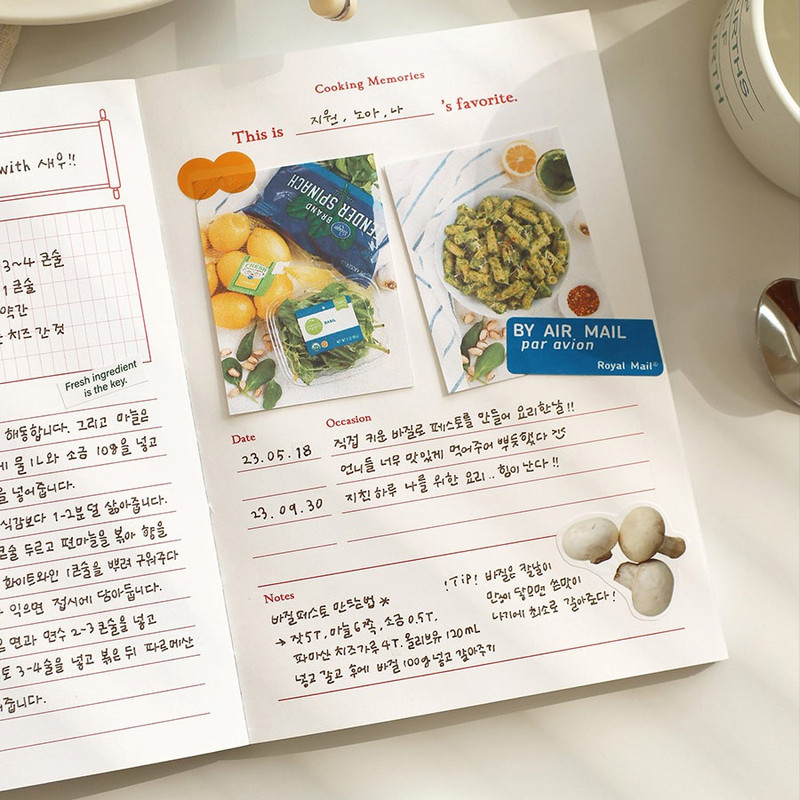 with 새우!!
3~4 큰술
1 큰술
약간
치즈 간 것
Fresh ingredient
is the key.
해동합니다. 그리고 마늘은
물 1L와 소금 10g을 넣고
을 넣어줍니다.
식감보다 1-2분 덜 삶아줍니다.
큰술 두르고 편마늘을 볶아 향을
화이트와인 1큰술을 뿌려 구워주다
익으면 접시에 담아둡니다.
은 면과 면수 2-3큰술을 넣고
토 3-4술을 넣고 볶은 뒤 파르메산
줍니다.
Cooking Memories
This is 지원, 노아, 나 's favorite.
BRAND
TENDER SPINACH
BASIL
BY AIR MAIL
par avion
Royal Mail®
Date
Occasion
23.05.18
직접 키운 바질로 페스토를 만들어 요리한 날!!
언니들 너무 맛있게 먹어주어 뿌듯했다
23.09.30
지친 하루 나를 위한 요리.. 힘이 난다!!
Notes
바질페스토 만드는법 *
→ 잣 5T, 마늘 6쪽, 소금 0.5T,
파마산 치즈가루 4T, 올리브유 120mL
넣고 갈고 후에 바질 100g 넣고 갈아주기
!TIP! 바질은 칼날이
많이 닿으면 쓴맛이
나기에 최소로 갈아준다!